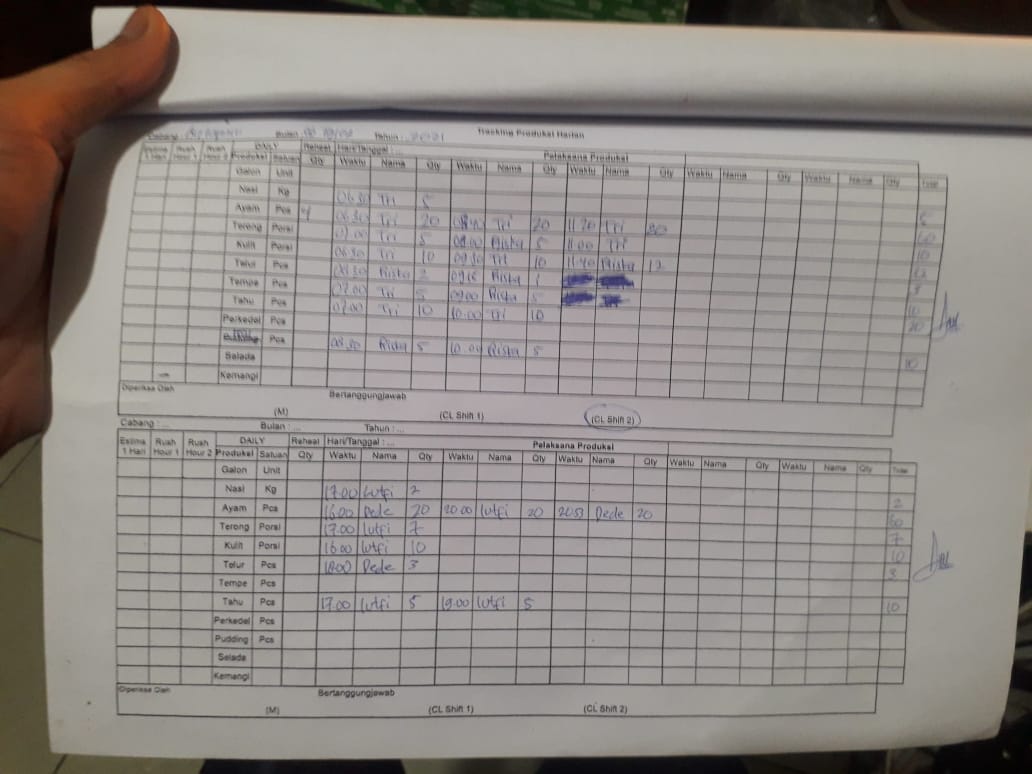 Tracking Produksi Harian
Cabang : Bulan : Tahun : 2021
Estima 1 Hari Rush Hour 1 Rush Hour 2 DAILY Reheat Hari/Tanggal : Pelaksana Produksi
Produksi Satuan Qty Waktu Nama Qty Waktu Nama Qty Waktu Nama Qty Waktu Nama Qty Waktu Nama Qty Total
Galon Unit
Nasi Kg 06.30 Tri 5 5
Ayam Pcs 4 06.30 Tri 20 Tri 20 11.20 Tri 20 60
Terong Porsi 07.00 Tri 5 09.00 Risha 5 11.00 Tri 10
Kulit Porsi 06.30 Tri 10 09.30 Tri 10 11.40 Risha 12
Telur Pcs 08.30 Risha 2 09.15 Risha 1
Tempe Pcs 07.00 Tri 5 09.00 Risha 5 10
Tahu Pcs 07.00 Tri 10 10.00 Tri 10 20
Perkedel Pcs
Pcs 08.30 Risha 5 10.00 Risha 5 10
Selada
Kemangi
Diperiksa Oleh Bertanggungjawab
(M) (CL Shift 1) (CL Shift 2)
Cabang : ... Bulan : ... Tahun : ...
Estima 1 Hari Rush Hour 1 Rush Hour 2 DAILY Reheat Hari/Tanggal : ... Pelaksana Produksi
Produksi Satuan Qty Waktu Nama Qty Waktu Nama Qty Waktu Nama Qty Waktu Nama Qty Waktu Nama Qty Total
Galon Unit
Nasi Kg 17.00 Lutfi 2 2
Ayam Pcs 16.00 Dede 20 20.00 Lutfi 20 20.53 Dede 20 60
Terong Porsi 17.00 Lutfi 7 7
Kulit Porsi 16.00 Lutfi 10 10
Telur Pcs 18.00 Dede 3 3
Tempe Pcs
Tahu Pcs 17.00 Lutfi 5 19.00 Lutfi 5 10
Perkedel Pcs
Pudding Pcs
Selada
Kemangi
Diperiksa Oleh Bertanggungjawab
(M) (CL Shift 1) (CL Shift 2)